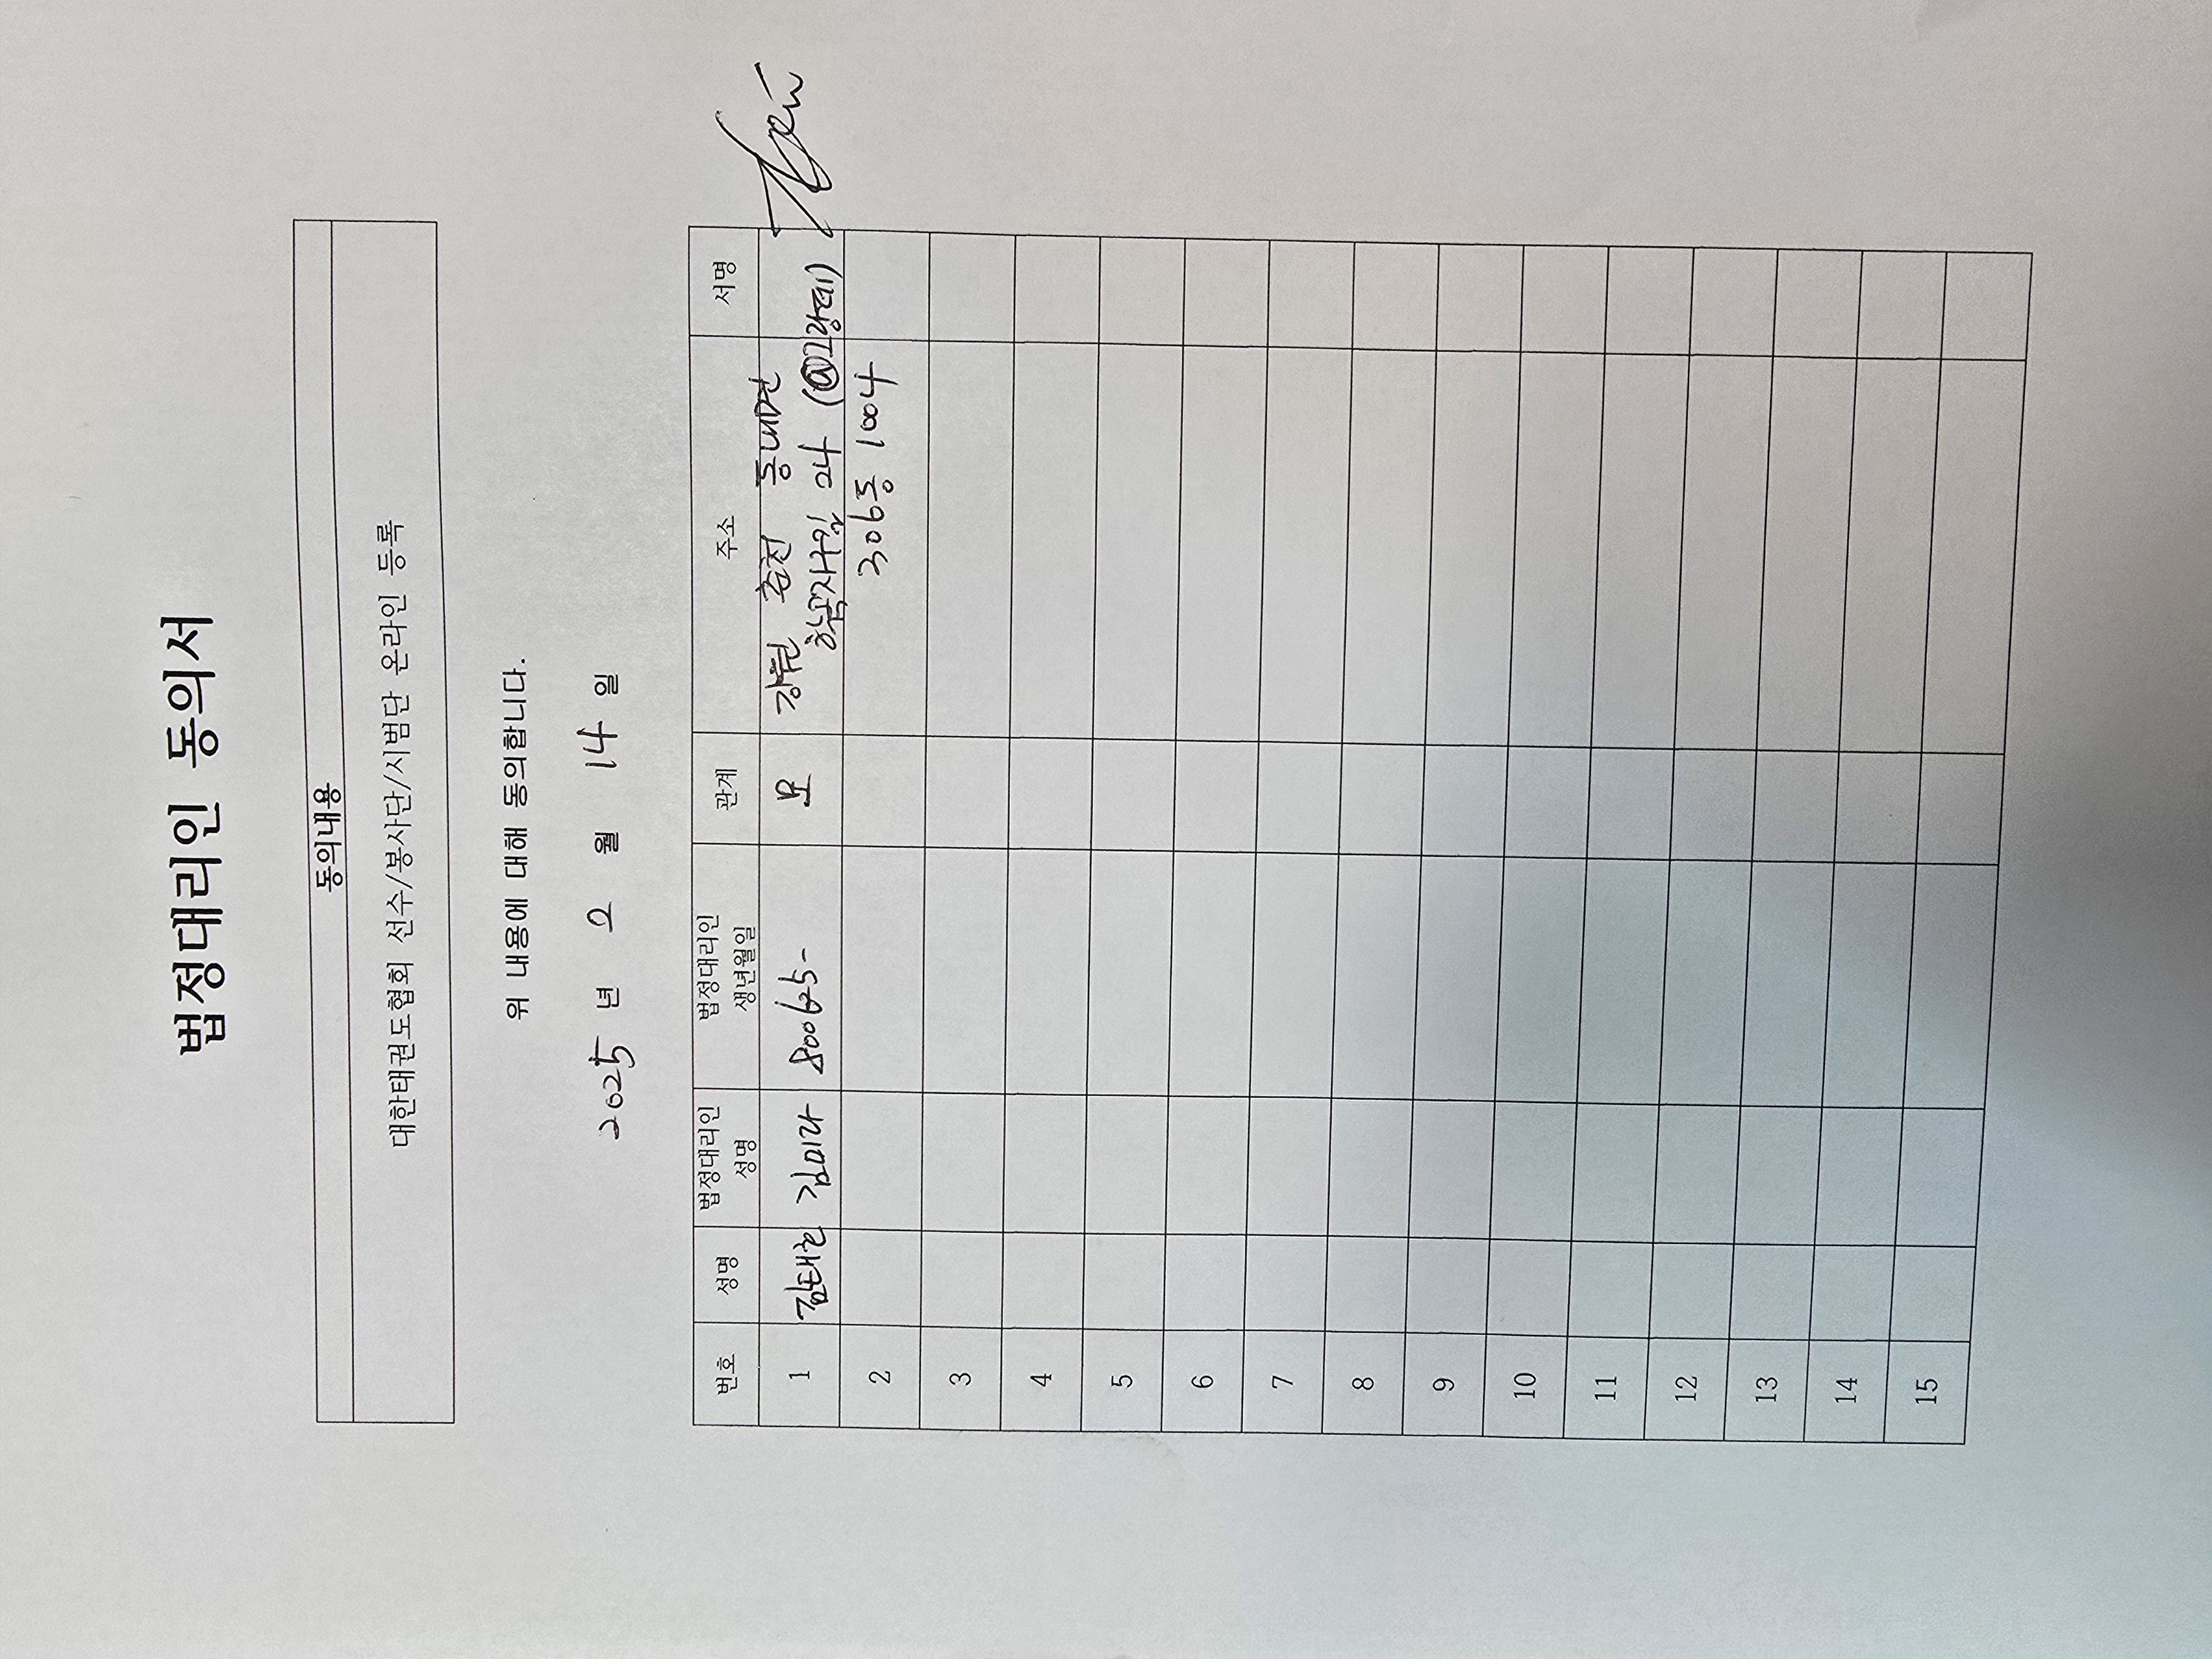 법정대리인 동의서
동의내용
대한태권도협회 선수/봉사단/시범단 온라인 등록
위 내용에 대해 동의합니다.
2025 년 2 월 14 일
번호 성명 법정대리인 성명 법정대리인 생년월일 관계 주소 서명
1 김태헌 김미라 800625- 모 강원 춘천 동내면
24 (@그랑데)
306동 1004
2
3
4
5
6
7
8
9
10
11
12
13
14
15